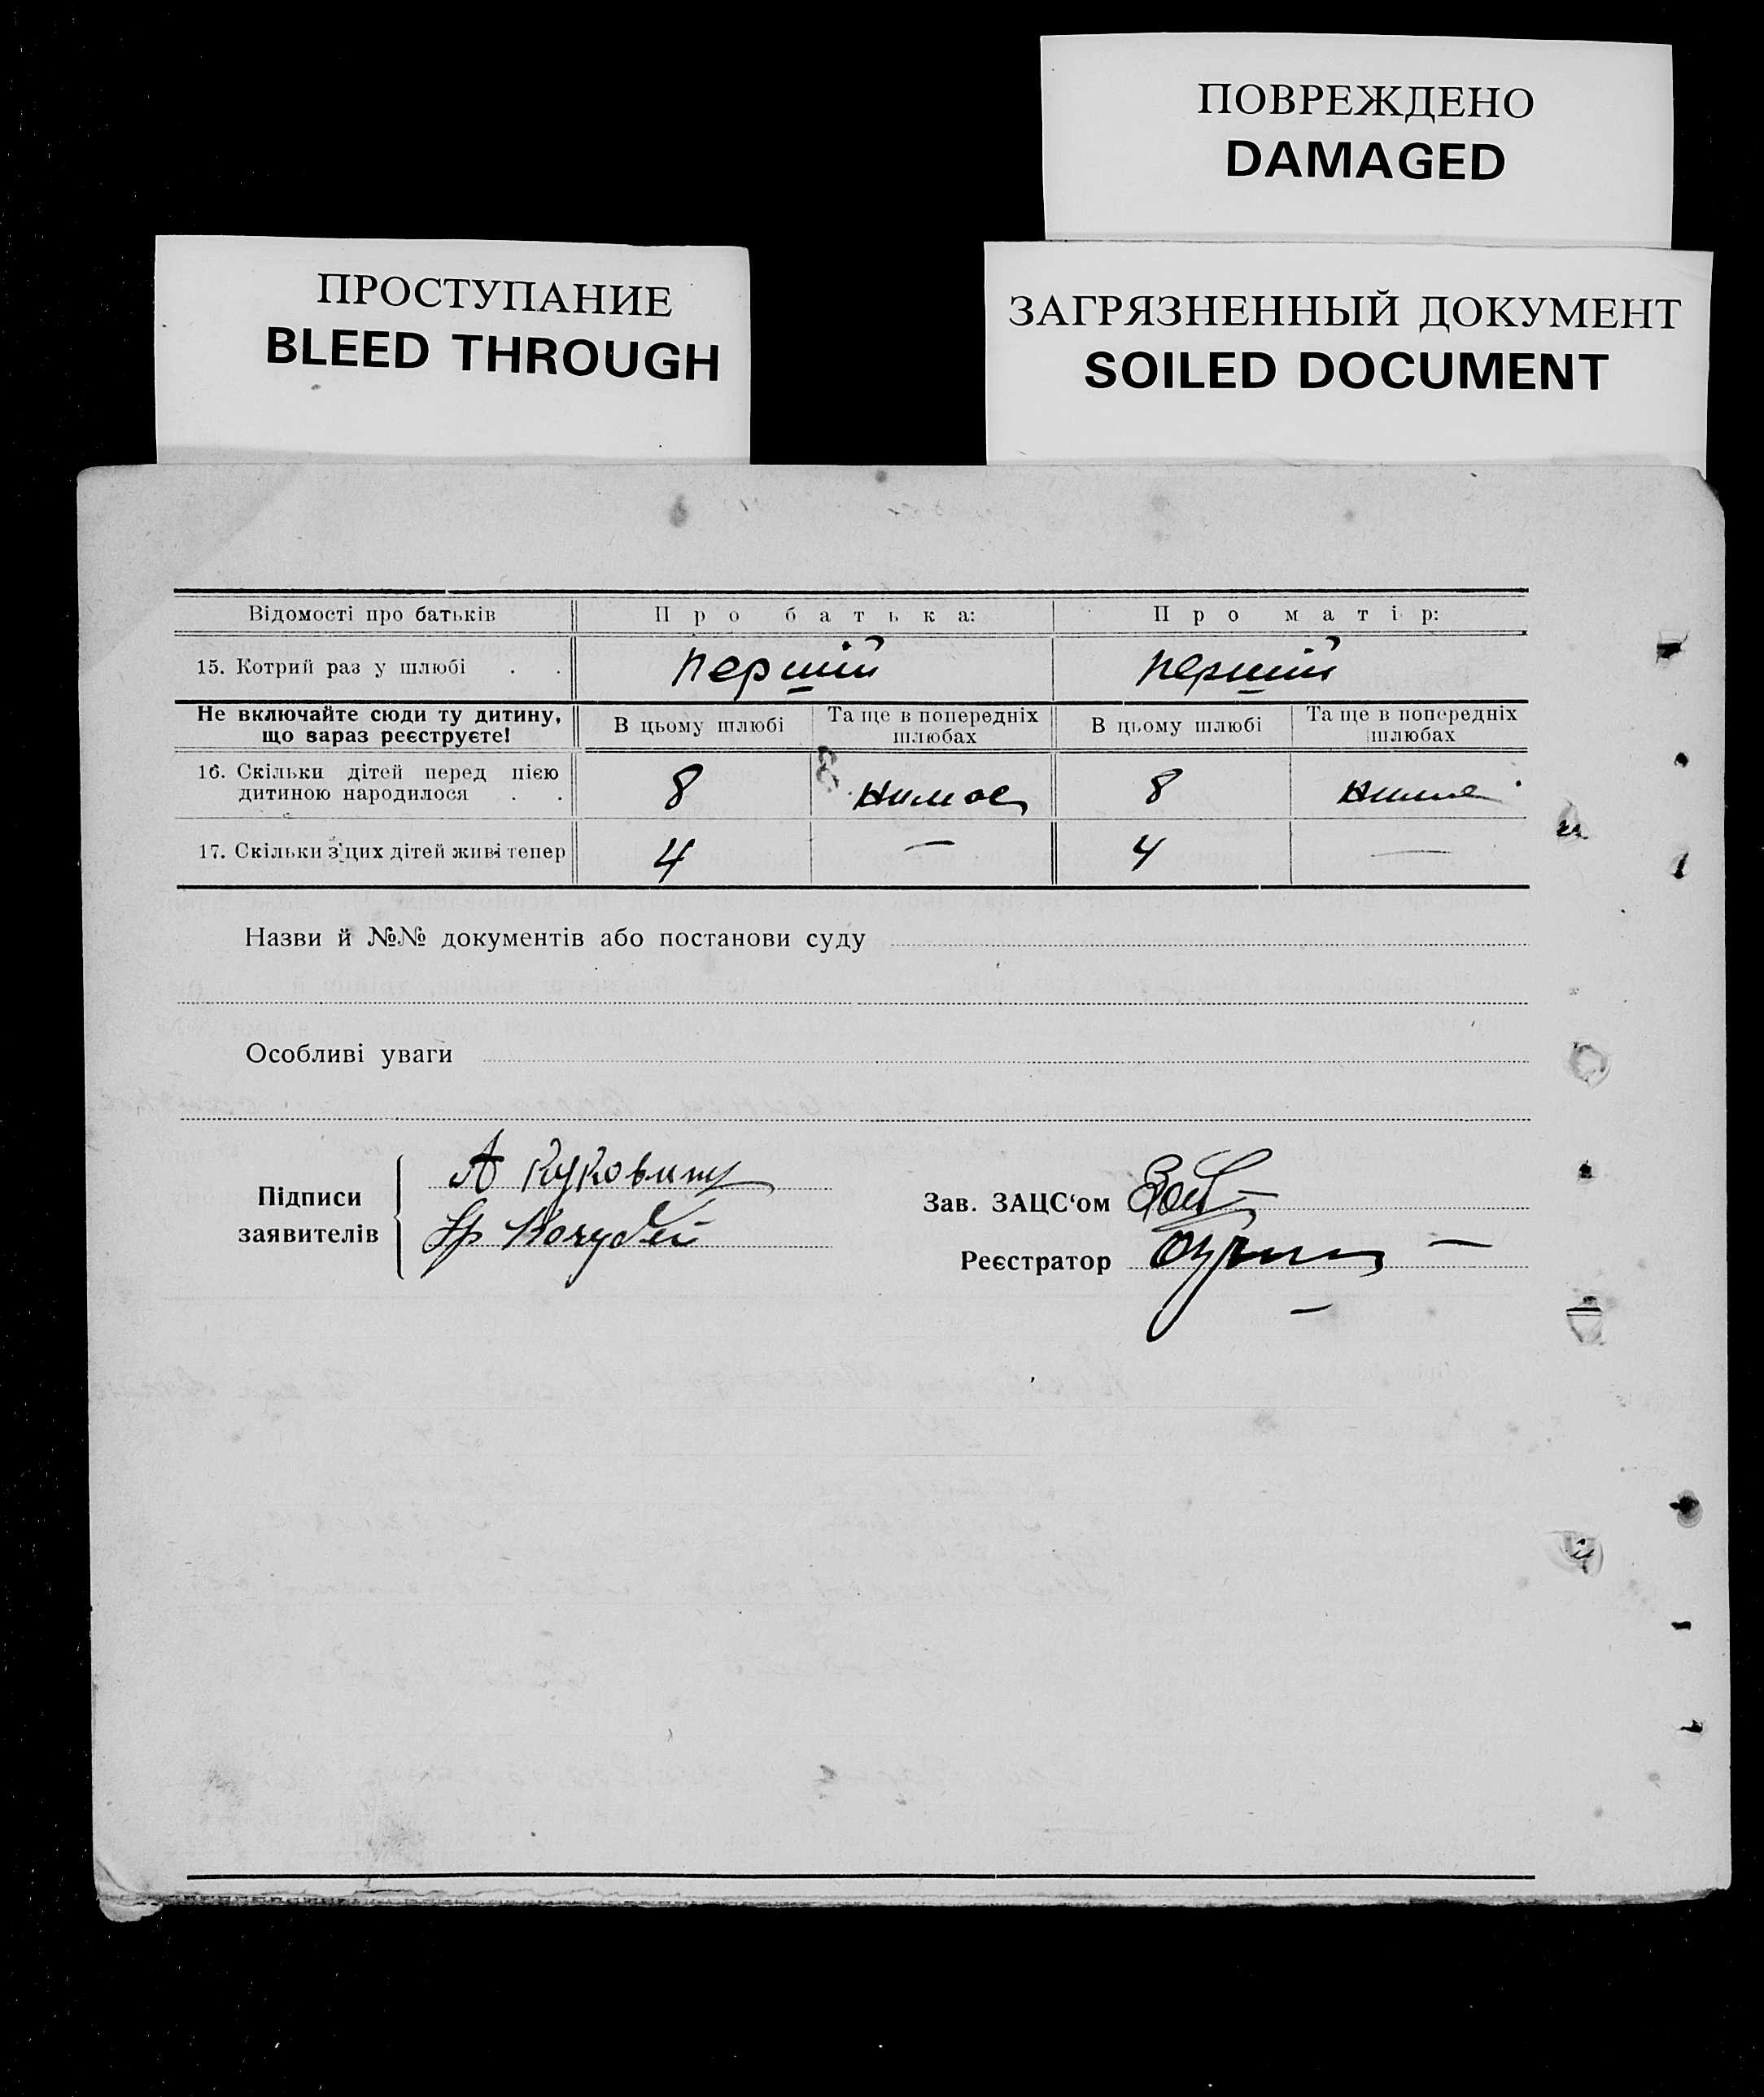 ПОВРЕЖДЕНО
DAMAGED
ПРОСТУПАНИЕ
BLEED THROUGH
ЗАГРЯЗНЕННЫЙ ДОКУМЕНТ
SOILED DOCUMENT
Відомості про батьків Про батька: Про матір:
15. Котрий раз у шлюбі . . перший перший
Не включайте сюди ту дитину, що зараз реєструєте! В цьому шлюбі Та ще в попередніх шлюбах В цьому шлюбі Та ще в попередніх шлюбах
16. Скільки дітей перед цією дитиною народилося . . 8 8
17. Скільки з цих дітей живі тепер 4 — 4 —
Назви й №№ документів або постанови суду
Особливі уваги
Підписи заявителів
А
Зав. ЗАЦС'ом
Реєстратор